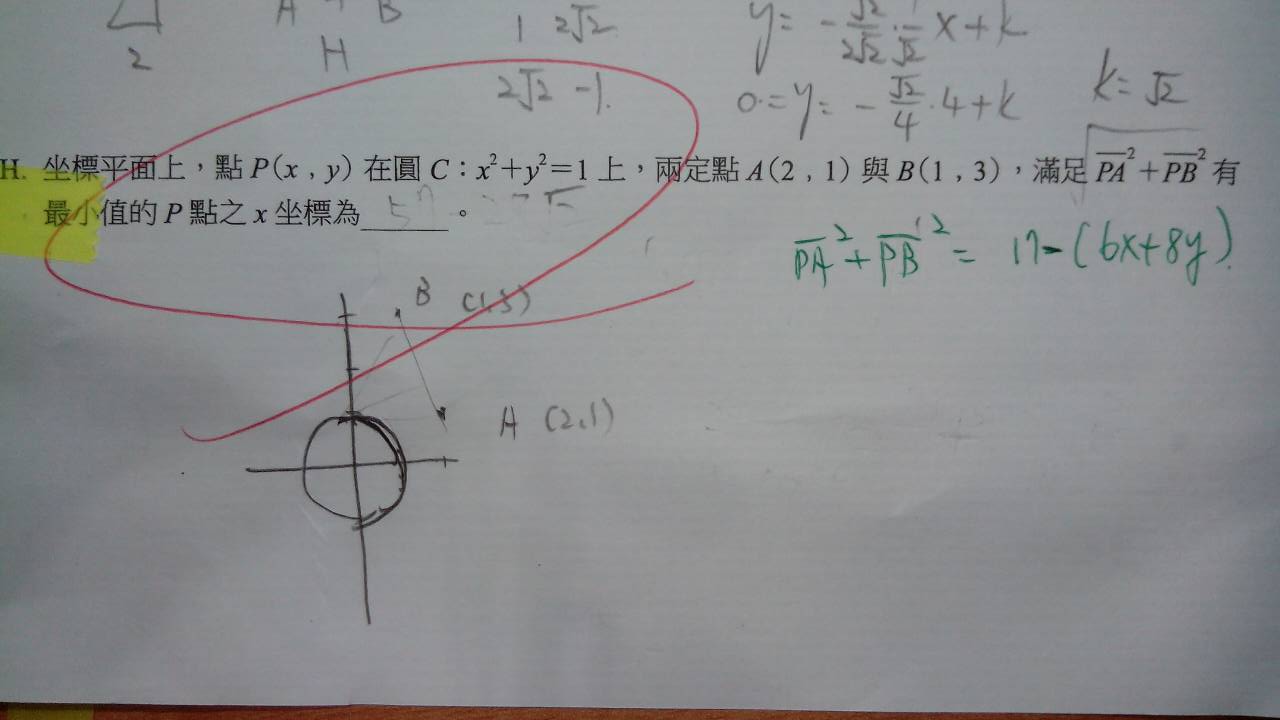 2
A + B
H
1 2√2
2√2 -1.
y = - √2/2√2 · 1/√2 x + k
0 = y = - √2/4 · 4 + k
k = √2
H. 坐標平面上，點 P(x , y) 在圓 C：x²+y²=1 上，兩定點 A(2 , 1) 與 B(1 , 3)，滿足 PA²+PB² 有
最小值的 P 點之 x 坐標為______。
PA²+PB² = 17-(6x+8y).
B
A (2,1)